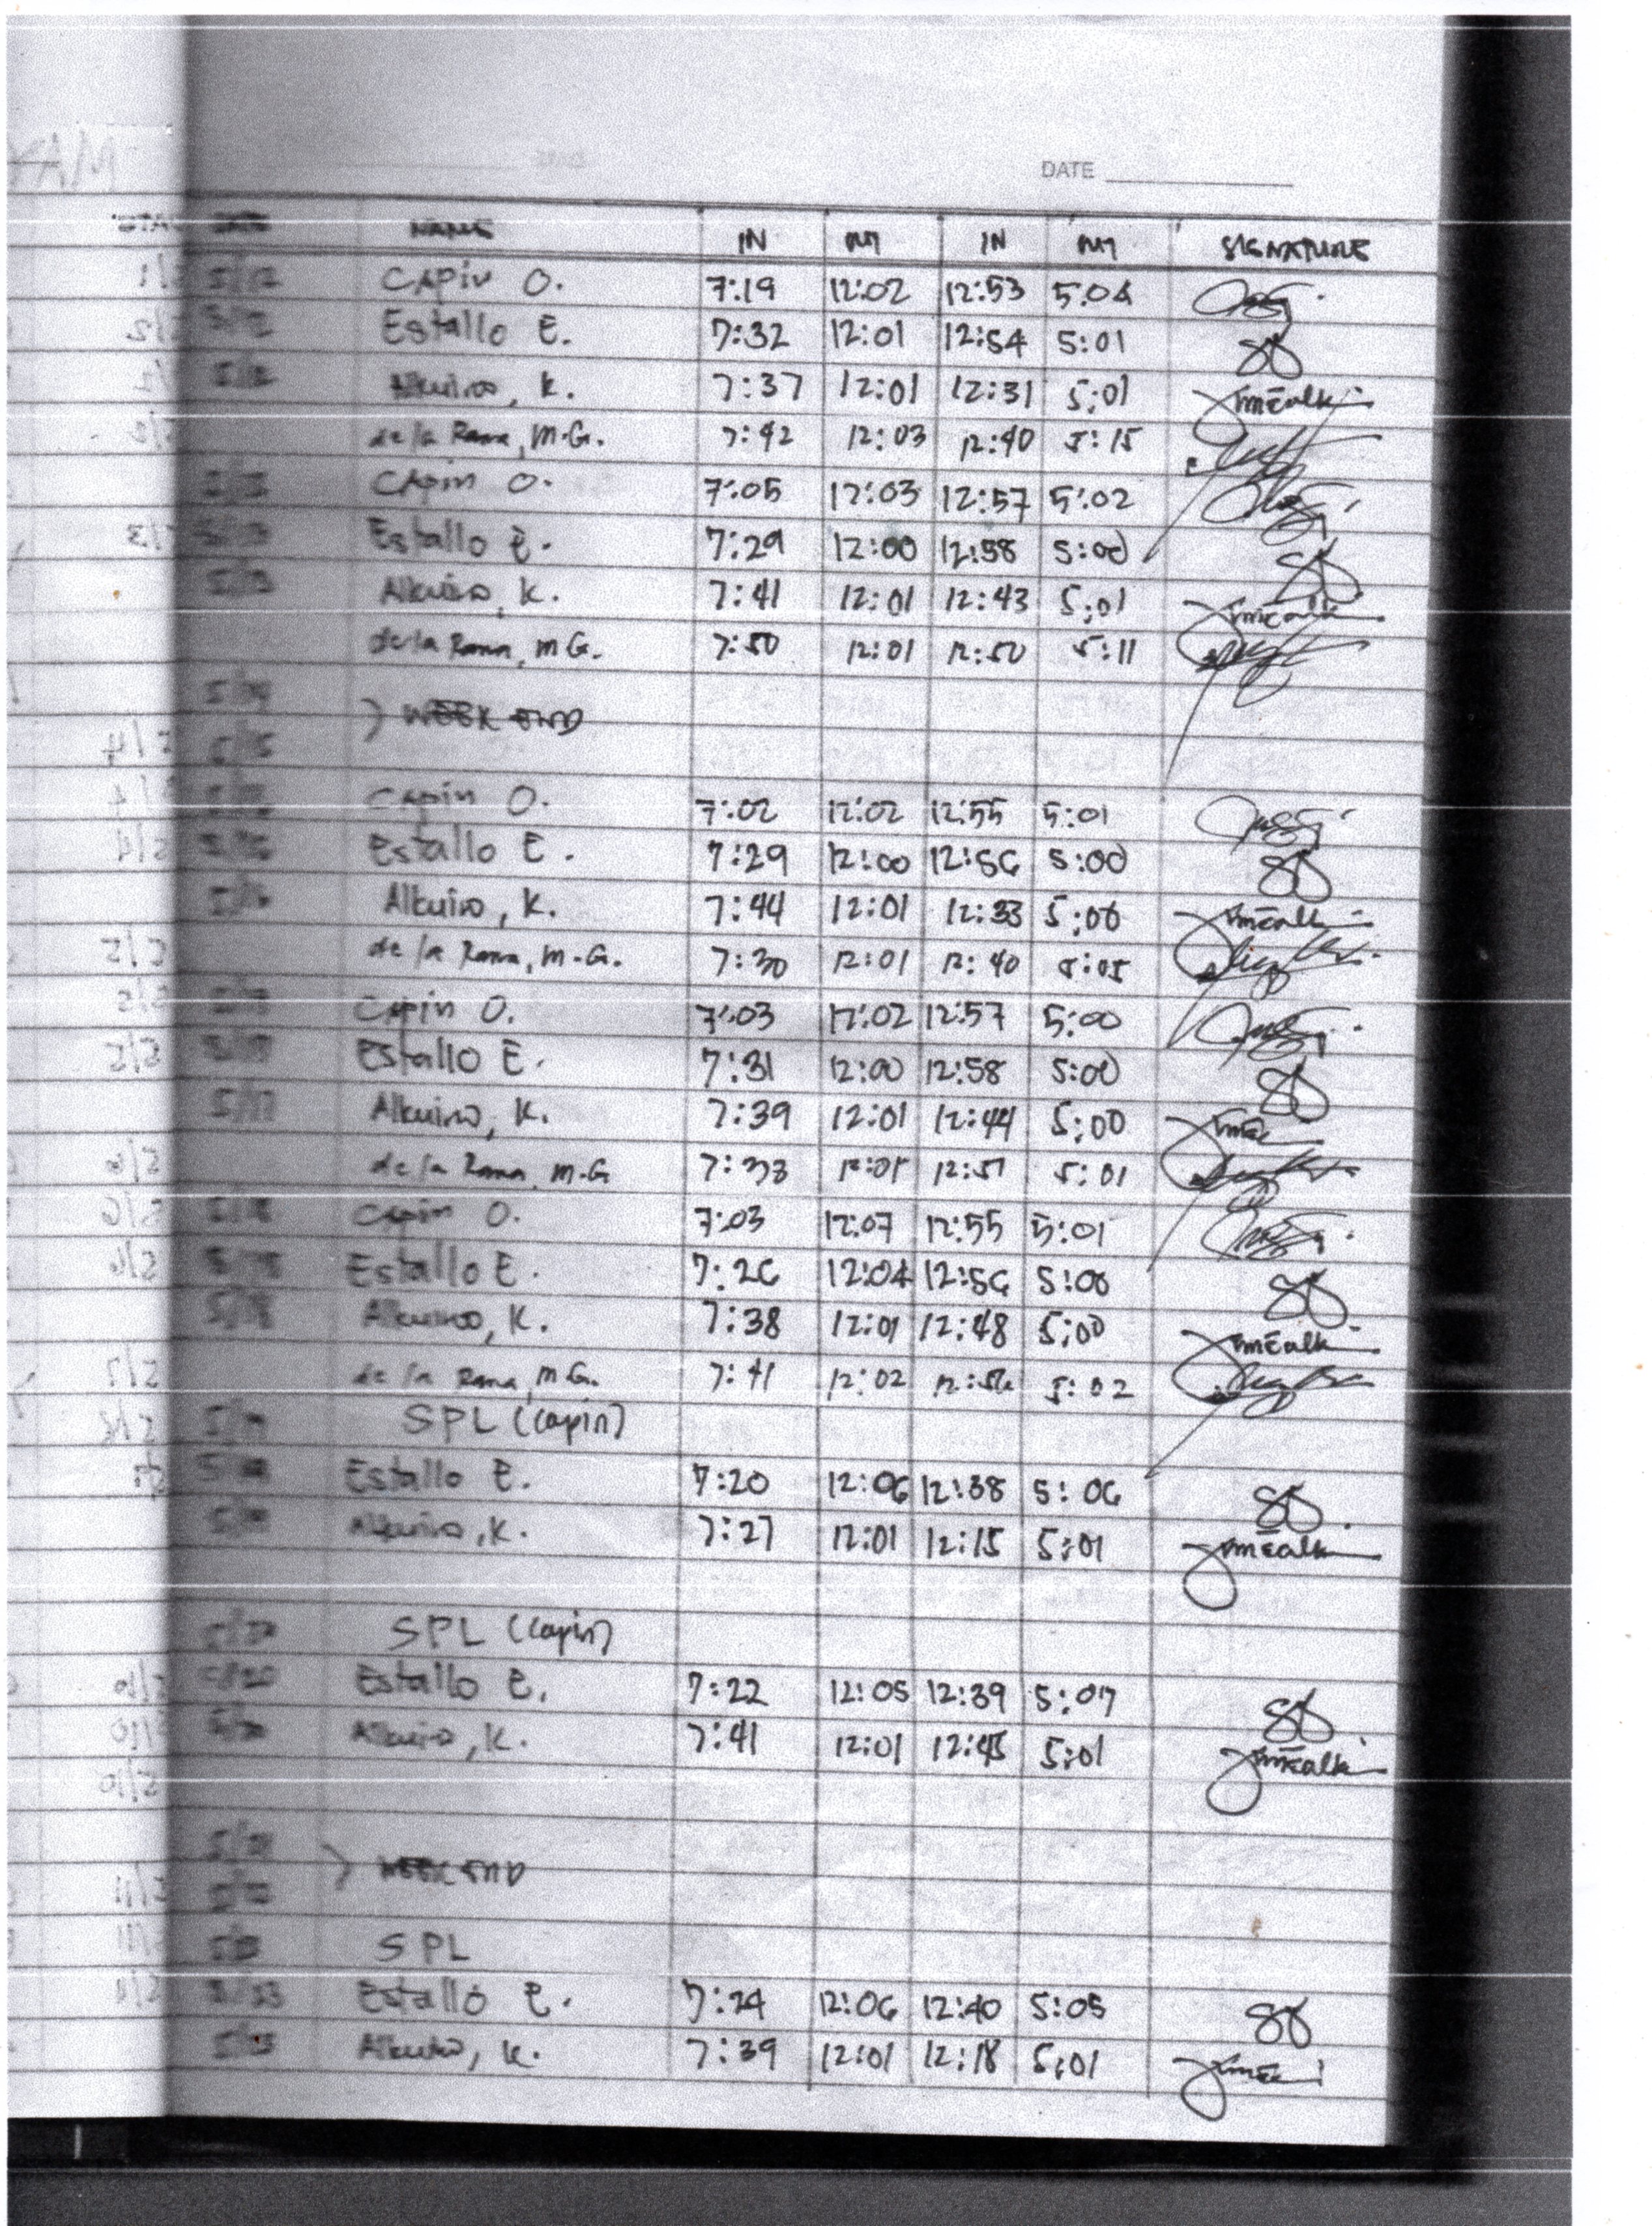 DATE
DATE NAME IN OUT IN OUT SIGNATURE
5/12 CAPIN O. 7:19 12:02 12:53 5:04
5/12 Estallo E. 7:32 12:01 12:54 5:01
5/12 Alkuino, K. 7:37 12:01 12:31 5:01
de la Rama, M.G. 7:42 12:03 12:40 5:15
5/13 CAPIN O. 7:05 12:03 12:57 5:02
5/13 Estallo E. 7:29 12:00 12:58 5:00
5/13 Alkuino, K. 7:41 12:01 12:43 5:01
de la Rama, M.G. 7:50 12:01 12:50 5:11
5/14
) WEEK END
5/15
5/16 CAPIN O. 7:02 12:02 12:55 5:01
5/16 Estallo E. 7:29 12:00 12:56 5:00
5/16 Alkuino, K. 7:44 12:01 12:33 5:00
de la Rama, M.G. 7:30 12:01 12:40 5:05
5/17 CAPIN O. 7:03 12:02 12:57 5:00
5/17 Estallo E. 7:31 12:00 12:58 5:00
5/17 Alkuino, K. 7:39 12:01 12:44 5:00
de la Rama, M.G 7:38 12:01 12:51 5:01
5/18 CAPIN O. 7:03 12:07 12:55 5:01
5/18 Estallo E. 7:26 12:04 12:56 5:00
5/18 Alkuino, K. 7:38 12:01 12:48 5:00
de la Rama, M.G. 7:41 12:02 5:02
5/19 SPL (Capin)
5/19 Estallo E. 7:20 12:06 12:38 5:06
5/19 Alkuino, K. 7:27 12:01 12:15 5:01
5/20 SPL (Capin)
5/20 Estallo E. 7:22 12:05 12:39 5:07
5/20 Alkuino, K. 7:41 12:01 12:45 5:01
5/21
) WEEK END
5/22
5/23 SPL
5/23 Estallo E. 7:24 12:06 12:40 5:05
5/23 Alkuino, K. 7:39 12:01 12:18 5:01